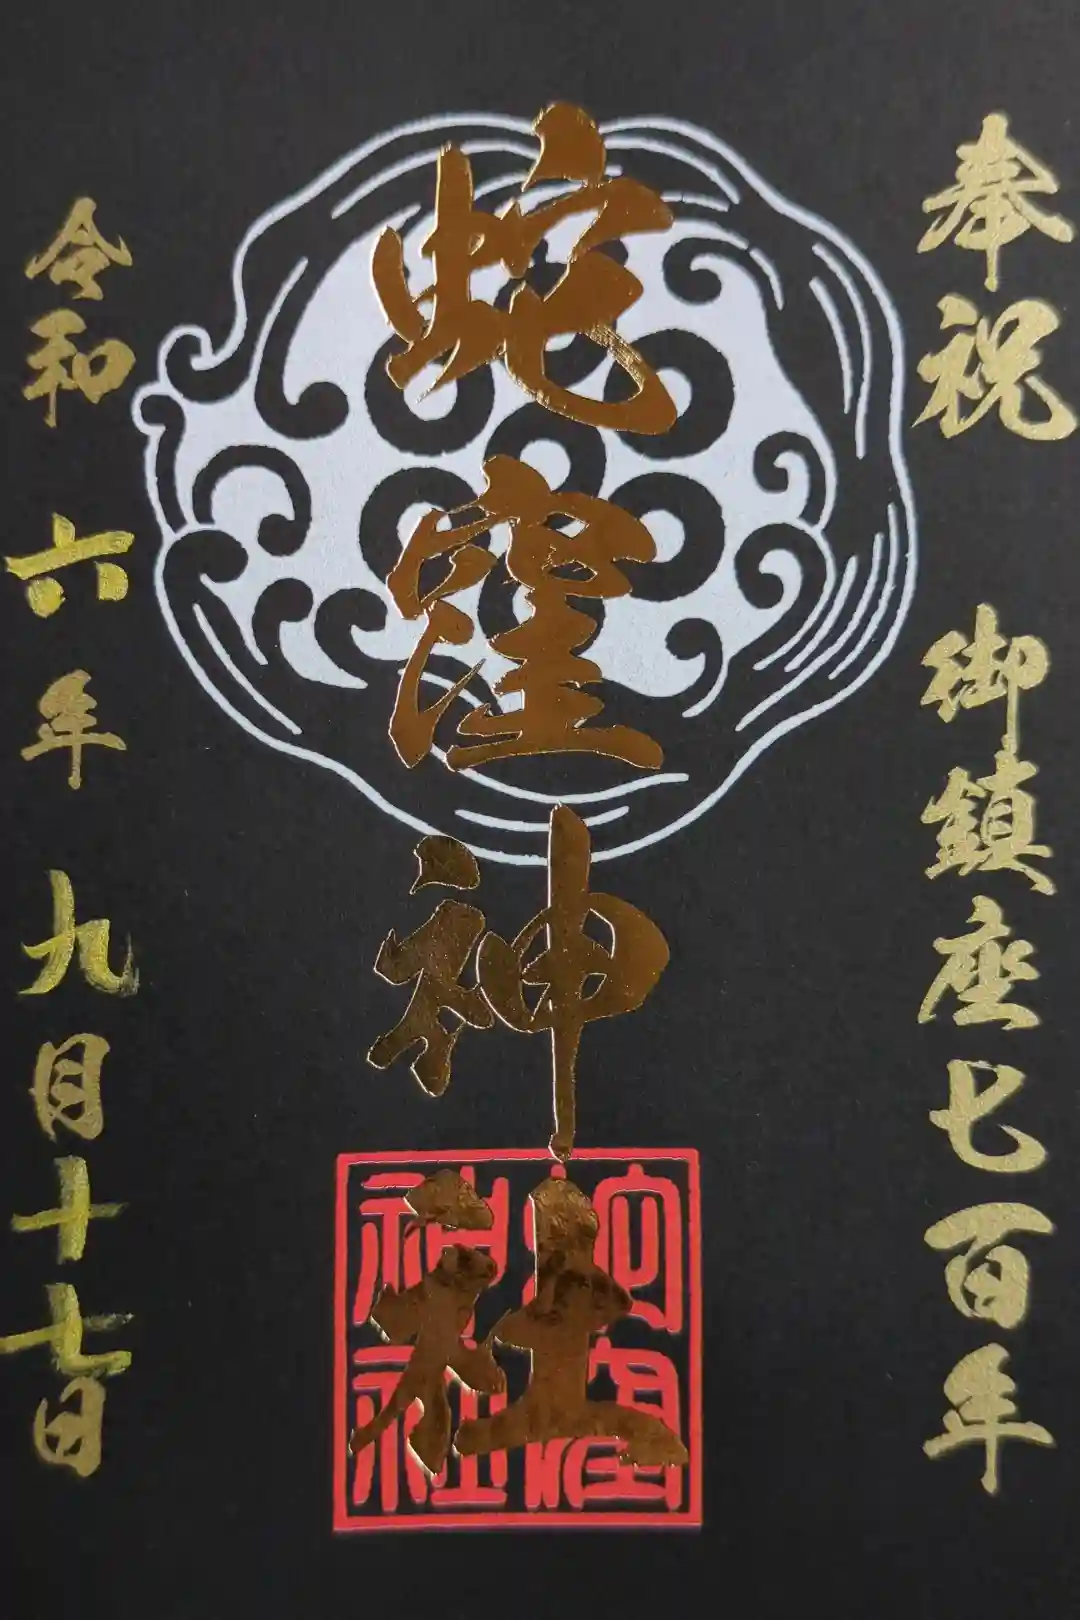 奉祝 御鎮座七百年
蛇窪神社
蛇窪
神社
令和六年九月十七日